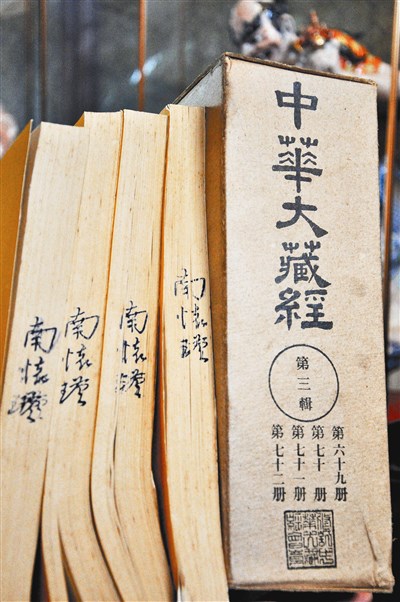 中華大藏經
第三輯
第六十九册
第七十册
第七十一册
第七十二册
南懷瑾
南懷瑾
南懷瑾
南懷瑾